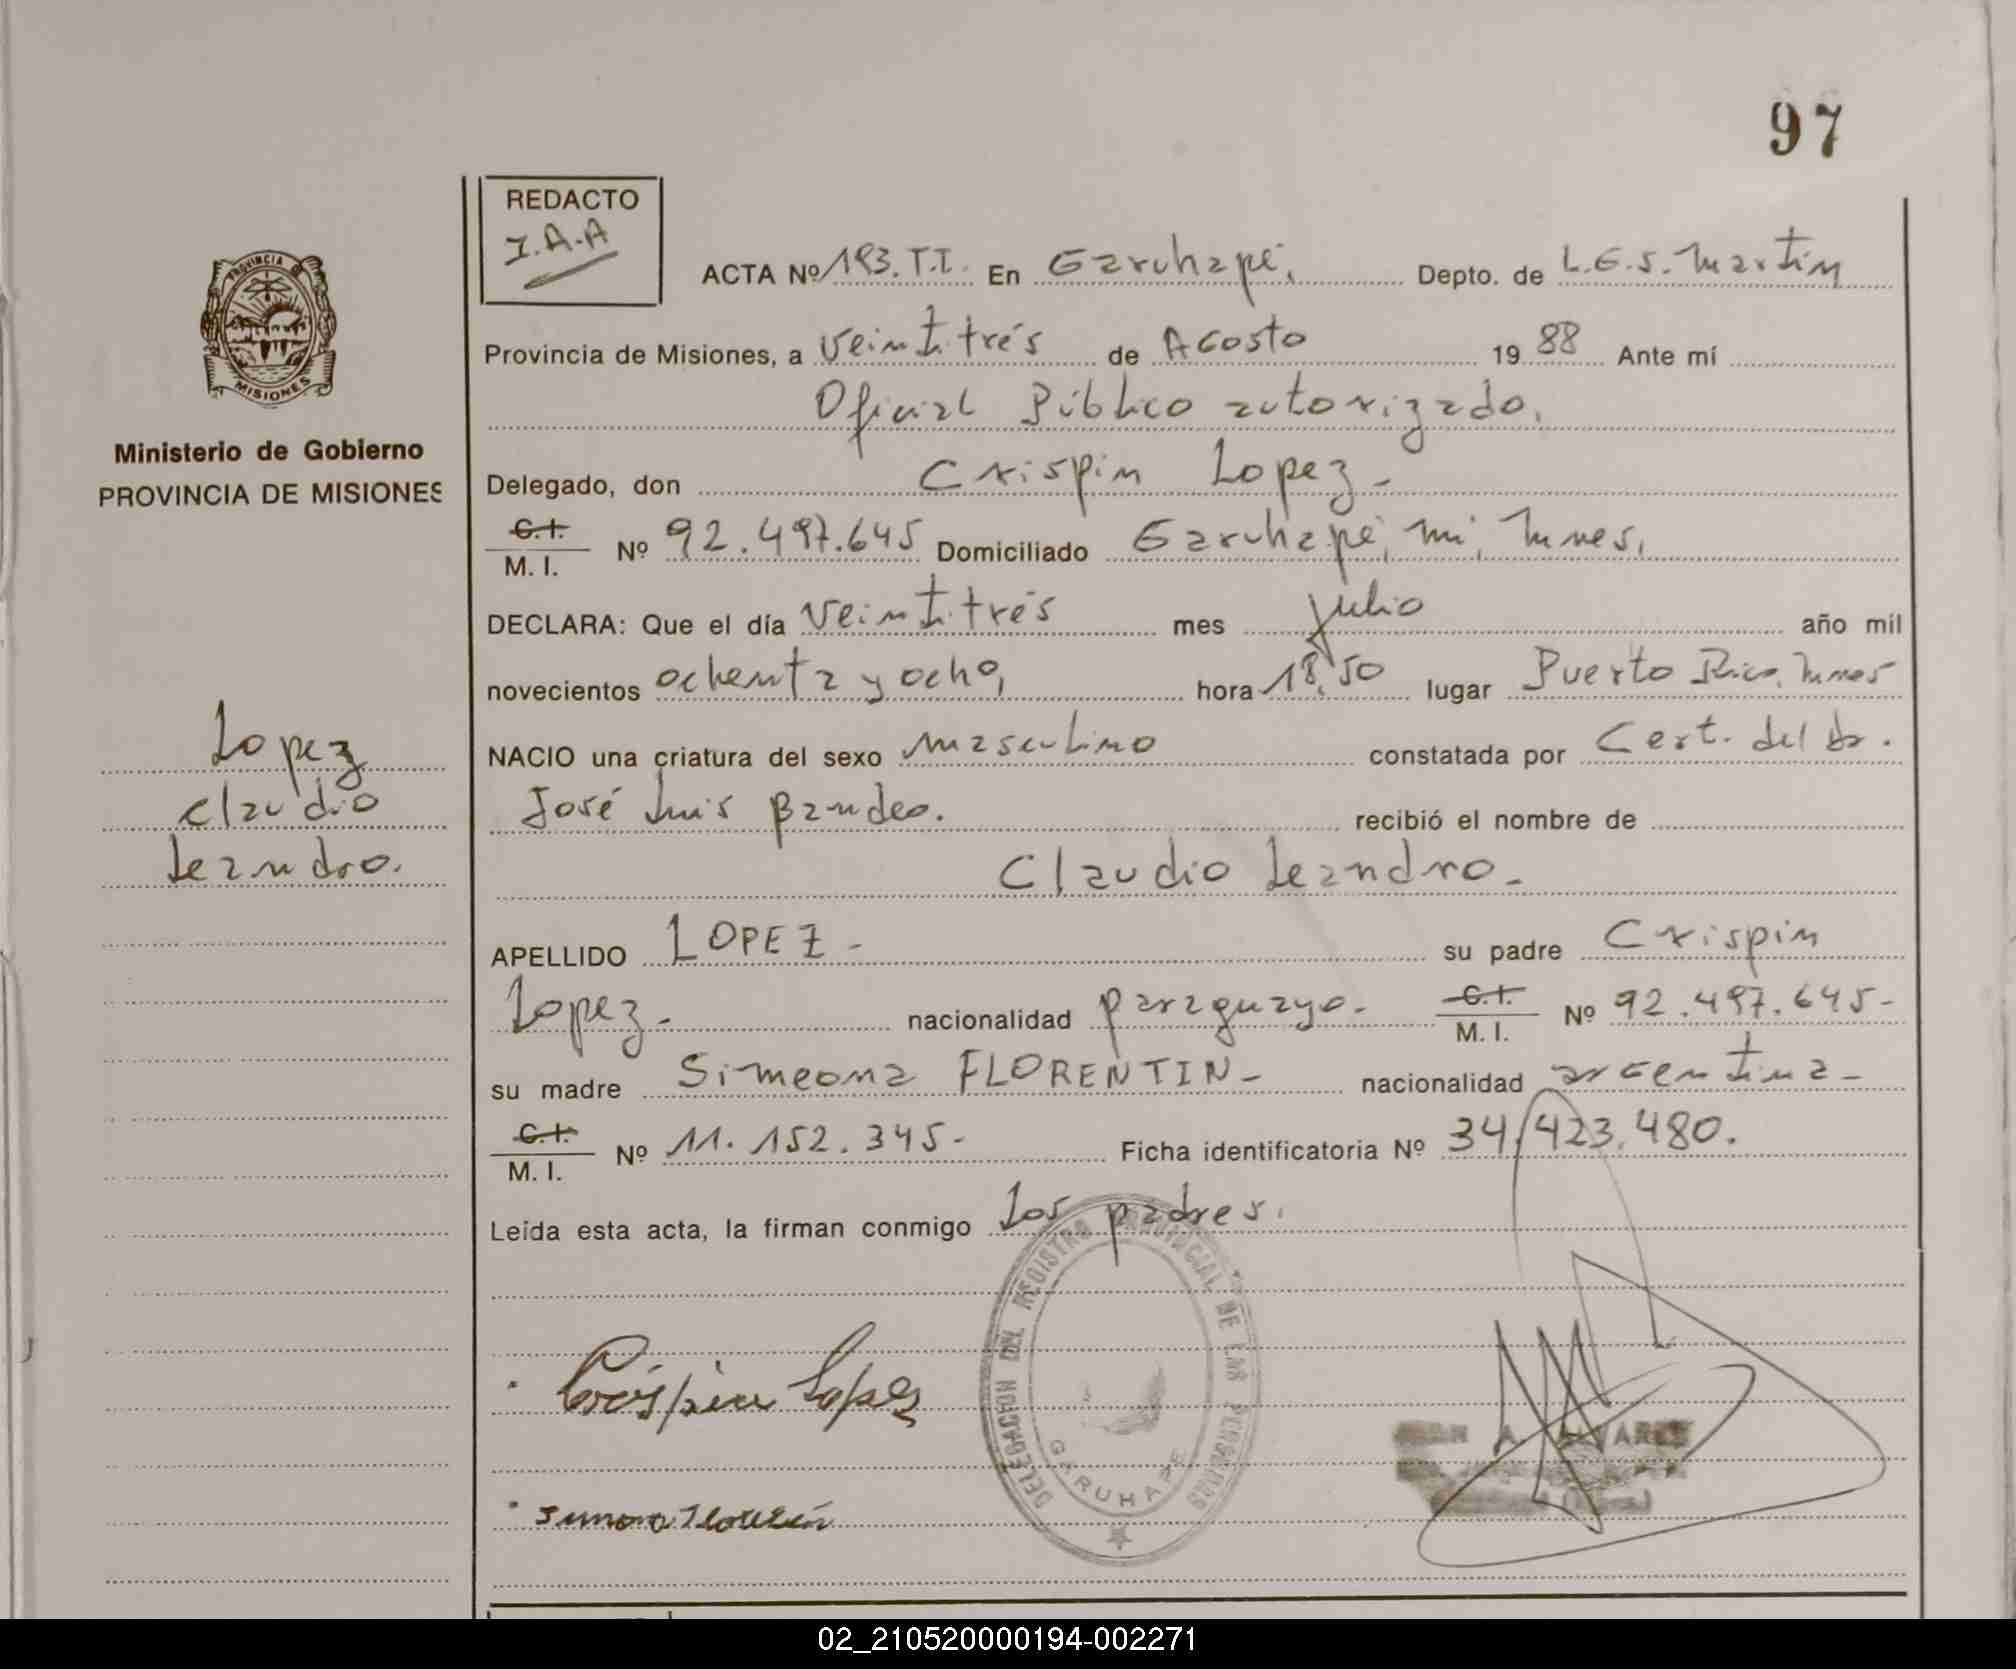 97
REDACTO
I.A.A
ACTA Nº 193.T.I. En Garuhapé, Depto. de L.G.S. Martín
Provincia de Misiones, a veintitrés de Agosto 1988 Ante mí
Oficial Público autorizado,
Delegado, don Crispin Lopez -
C.I.
M. I. Nº 92.497.645 Domiciliado Garuhapé, mi, Mnes,
DECLARA: Que el día veintitrés mes julio año mil
novecientos ochenta y ocho, hora 18,50 lugar Puerto Rico, Mnes
NACIO una criatura del sexo masculino constatada por Cert. del Dr.
José Luis Bandeo. recibió el nombre de
Claudio Leandro. -
APELLIDO LOPEZ - su padre Crispin
Lopez - nacionalidad paraguayo. C.I.
M. I. Nº 92.497.645 -
su madre Simeona FLORENTIN - nacionalidad argentina -
C.I.
M. I. Nº 11.152.345 - Ficha identificatoria Nº 34.423.480.
Leída esta acta, la firman conmigo los padres.
Crispin Lopez
DELEGACION DEL REGISTRO PROVINCIAL DE LAS PERSONAS
GARUHAPE
A. ALVAREZ
PROVINCIA DE
MISIONES
Ministerio de Gobierno
PROVINCIA DE MISIONES
Lopez
Claudio
Leandro.
02_210520000194-002271